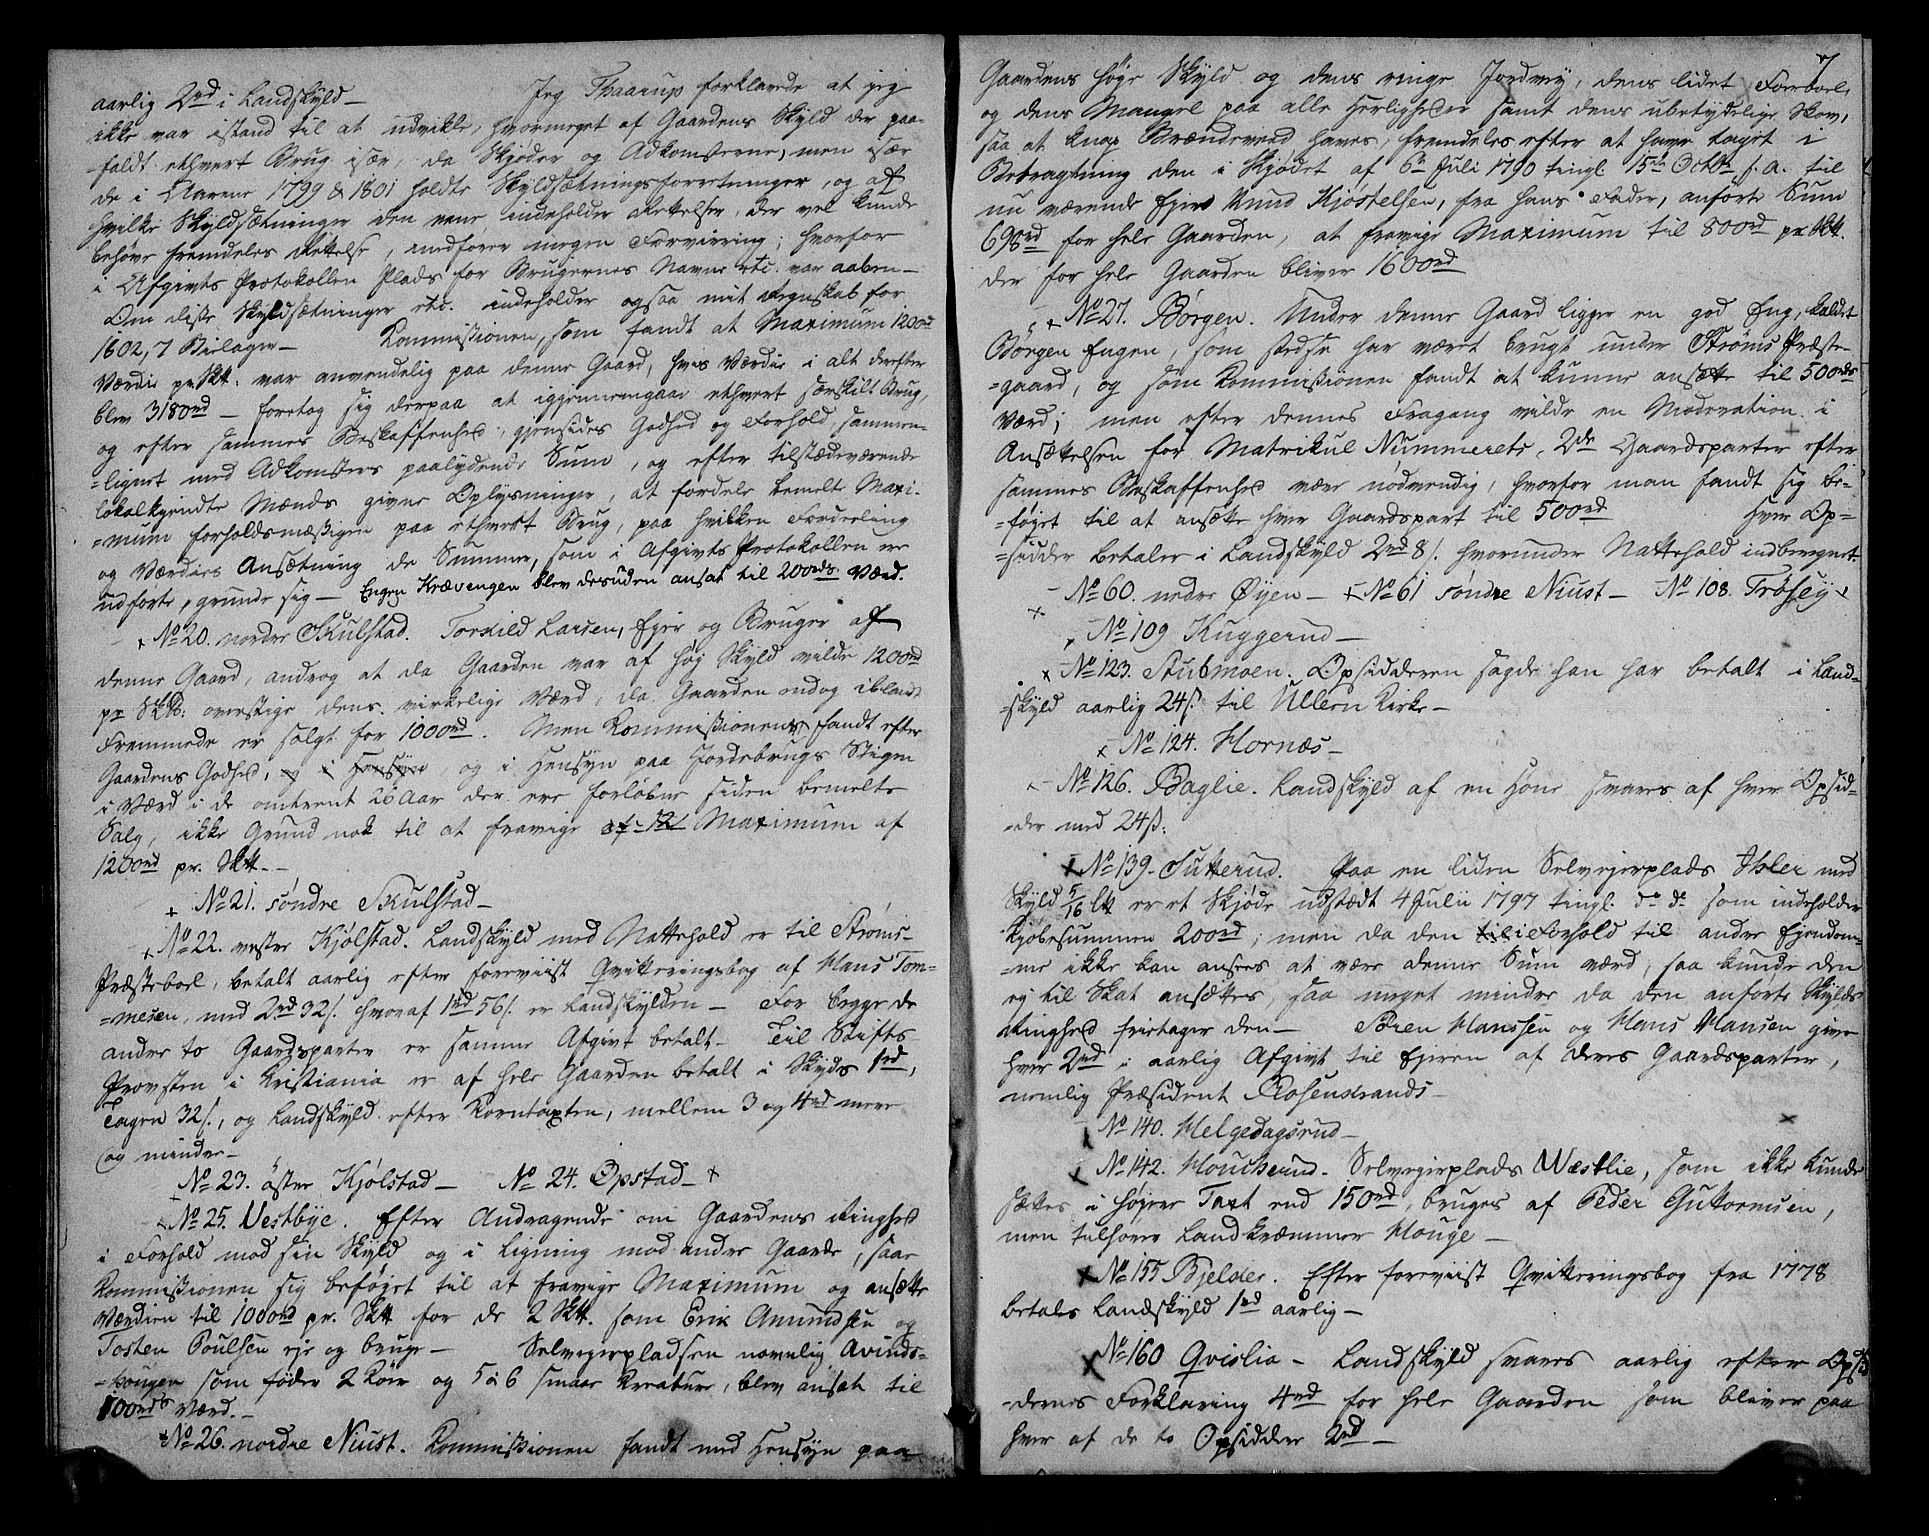 aarlig 2rd i Landskyld — Jeg Thaarup forklarede at jeg
ikke var istand til at udvikle, hvormeget af Gaardens Skyld der paa-
faldt ethvert Brug især, da Skjøder og Adkomsterne, men især
de i Aarene 1799 & 1801 holdte Skyldsætningsforretninger, og af
hvilke Skyldsætninger den eene indeholder Rettelser, der vel kunde
behøve fremdeles Rettelse, medfører megen Forvirring; hvorfor
i Afgivts Protokollen Plads for Brugernes Navne etc. var aaben —
Om disse Skyldsætninger etc. indeholder ogsaa mit Regnskab for
1602, 7 Bielager — Kommissionen, som fandt at Maximum 1200rd
Værdie pr Skt: var anvendelig paa denne Gaard, hvis Værdie i alt derefter
blev 3180rd — foretog sig derpaa at igjennemgaae ethvert særskilt Brug,
og efter sammes Beskaffenhed, gjensides Godhed og Forhold, sammen-
=lignet med Adkomsters paalydende Sum, og efter tilstædeværende
lokalkyndte Mænds givne Oplysninger, at fordele bemelte Maxi-
=mum forholdsmæssigen paa ethvert Brug, paa hvilken Fordeeling
og Værdies Ansætning de Summer, som i Afgivts Protokollen ere
udførte, grunde sig — Engen Krævengen blev desuden ansat til 200rds Værd.
No 20. nordre Skulstad. Torkild Larsen, Ejer og Bruger af
denne Gaard, androg at da Gaarden var af høj Skyld vilde 1200rd
pr Skt: overstige dens virkelige Værd, da Gaarden endog iblandt
Fremmede er solgt for 1000rd. Men Kommissionen fandt efter
Gaardens Godhed, og i Hensyn og i Hensyn paa Jordebrugs Stigen
i Værd i de omtrent 20 Aar der ere forløbne siden bemelte
Salg, ikke Grund nok til at fravige af 12 Maximum af
1200rd pr. Skt. —
No 21. søndre Skulstad —
No 22. vestre Kjølstad. Landskyld med Nattehold er til Strøms-
Præsteboel, betalt aarlig efter foreviist Qvitteringsbog af Hans Tom-
=mesen, med 2rd 32/. hvoraf 1rd 56/. er Landskylden — For begge de
andre to Gaardsparter er samme Afgivt betalt — Til Stifts
Provsten i Kristiania er af hele Gaarden betalt i Skyds 1rd,
Tagen 32/., og Landskyld efter Korntaxten, mellem 3 og 4rd mere
og mindre —
No 23. østre Kjølstad — No 24. Opstad —
No 25. Vestbye. Efter Andragende om Gaardens Ringhed
i Forhold mod sin Skyld og i Ligning mod andre Gaarde, saae
Kommissionen sig beføjet til at fravige Maximum og ansætte
Værdien til 1000rd pr. Skt for de 2 Skt. som Erik Amundsen og
Tosten Poulsen eje og bruge — Selvejerpladsen navnlig Avinds-
=hougen som føder 2 Køer og 5 à 6 smaae Kreature, blev ansat til
100rds Værd. —
No 26. nordre Niust. Kommissionen fandt med Hensyn paa
7
Gaardens høje Skyld og dens ringe Jordvej, dens lidet Foerboel,
og dens Mangel paa alle Herligheder samt dens ubetydelige Skov,
saa at knap Brændeveed haves, fremdeles efter at have taget i
Betragtning den i Skjødet af 6te Juli 1790 tingl. 15de Octbr. s. a. til
nu værende Ejer Knud Kjøstelsen, fra hans Fader, anførte Sum
698rd for hele Gaarden, at fravige Maximum til 800rd pr. Skt.
der for hele Gaarden bliver 1600rd
No 27. Børgen. Under denne Gaard ligger en god Eng, kaldet
Børgen Engen, som stedse har været brugt under Strøms Præste-
=gaard, og som Kommissionen fandt at kunne ansætte til 500rds
Værd; men efter dennes Fragang vilde en Moderation i
Ansættelsen for Matrikul Nummerets 2de Gaardsparter efter
sammes Beskaffenhed være nødvendig, hvorfor man fandt sig be-
=føjet til at ansætte hver Gaardspart til 500rd hver Op-
=sidder betaler i Landskyld 2rd 8/. hvorunder Nattehold indberegnet.
No 60. nedre Øyen — No 61 søndre Niust — No 108. Trøsej
No 109 Kuggerud —
No 123. Stubmoen. Opsidderen sagde han har betalt i Land-
=skyld aarlig 24/. til Ullern Kirke —
No 124. Hornæs —
No 126. Baglie. Landskyld af en Høne svares af hver Opsid-
=der med 24ß.
No 139. Sutterud. Paa en liden Selvejerplads Isler med
Skyld 5/16 Skt er et Skjøde udstædt 4 Julii 1797 tingl. d. d. som indeholder
Kjøbesummen 200rd; men da den til i Forhold til andre Ejendom-
=me ikke kan ansees at være denne Sum værd, saa kunde den
ej til Skat ansættes, saa meget mindre da den anførte Skylds
Ringhed fritager den — Søren Hanssen og Hans Hansen give
hver 2rd i aarlig Afgivt til Ejeren af deres Gaardsparter,
nemlig Præsident Rosenkrands —
No 140. Helgedagsrud —
No 142. Houcherud. Selvejerplads Wæstlie, som ikke kunde
sættes i højere Taxt end 150rd, bruges af Peder Guttormsen,
men tilhører Landkræmmer Houge —
No 155 Bjelder. Efter foreviist Qvitteringsbog fra 1778
betales Landskyld 1rd aarlig —
No 160 Qvislia — Landskyld svares aarlig efter Opsid-
=dernes Forklaring 4rd for hele Gaarden som bliver paa
hver af de to Opsiddere 2rd —